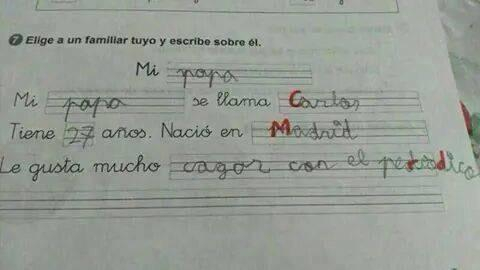 7 Elige a un familiar tuyo y escribe sobre él.
Mi papa
Mi papa se llama Carlos
Tiene 27 años. Nació en Madrid
Le gusta mucho cagar con el periodico